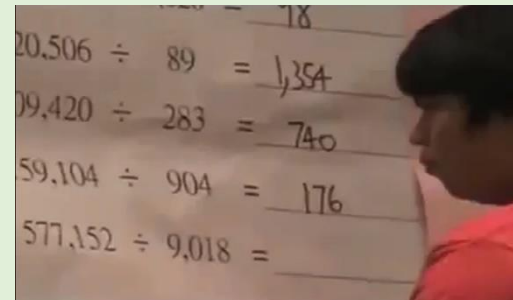 = 78
20,506 ÷ 89 = 1,354
09,420 ÷ 283 = 740
59,104 ÷ 904 = 176
577,152 ÷ 9,018 =